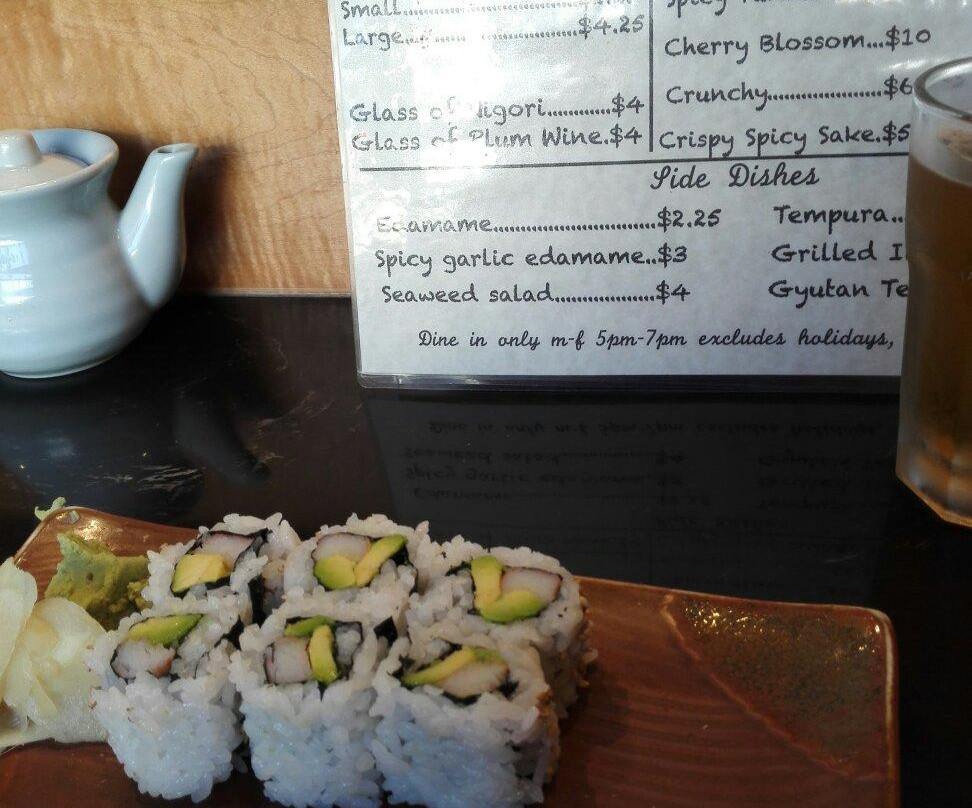 Small
Large $4.25
Glass of Nigori............$4
Glass of Plum Wine.$4
Cherry Blossom...$10
Crunchy....................$6
Crispy Spicy Sake.$5
Side Dishes
Edamame..............................$2.25
Spicy garlic edamame..$3
Seaweed salad...................$4
Tempura..
Grilled
Gyutan
Dine in only m-f 5pm-7pm excludes holidays,